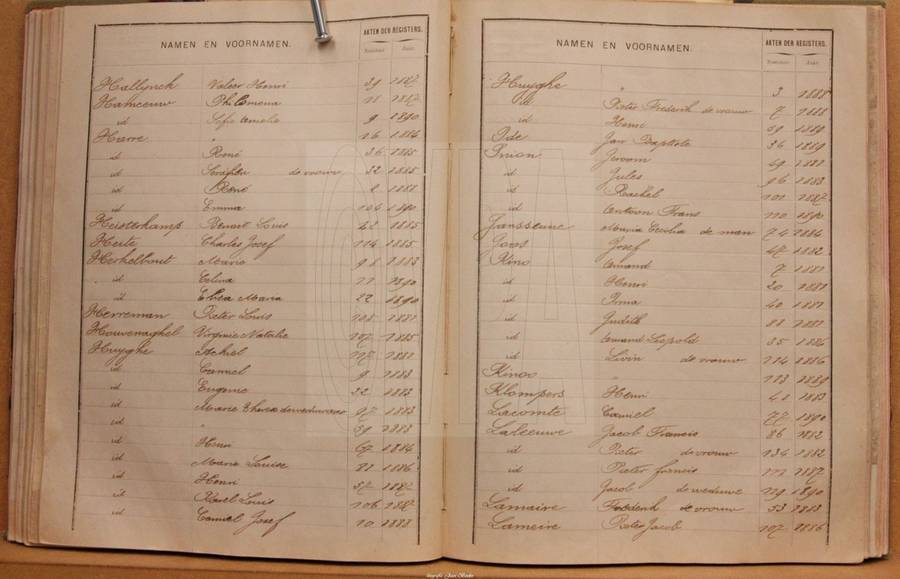 NAMEN EN VOORNAMEN. AKTEN DER REGISTERS.
Nummer Jaar
Hallynck Valeer Henri 39 1887
Hameeuw Philomena 11 1887
id Sofie Amelie 9 1890
Harre 16 1884
id René 36 1885
id Serafien de vrouw 32 1885
id René 2 1888
id Emma 106 1890
Heisterkamp Benoit Louis 42 1885
Heite Charles Josef 114 1885
Herkelbout Maria 98 1883
id Celina 11 1890
id Elisa Maria 22 1890
Herreman Pieter Louis 105 1881
Houvenaghel Virginie Natalie 107 1885
Huyghe Achiel 117 1881
id Camiel 9 1883
id Eugenie 22 1883
id Marie Theresia de weduwe 97 1883
id " 39 1883
id Henri 67 1884
id Maria Louise 81 1886
id Henri 37 1887
id Karel Louis 106 1887
id Camiel Josef 10 1888
NAMEN EN VOORNAMEN. AKTEN DER REGISTERS.
Nummer Jaar
Huyghe " 3 1888
id Pieter Frederik de vrouw 7 1888
id Henri 59 1889
Ide Jan Baptiste 36 1889
Inion Jeroom 49 1881
id Jules 96 1883
id Rachel 101 1887
id Antoon Frans 110 1890
Jansseune Maria Cecilia de man 74 1884
Joos Josef 47 1882
Kino Amand 7 1881
id Henri 20 1881
id Irma 40 1881
id Judith 88 1881
id Amand Leopold 35 1886
id Livin de vrouw 114 1886
Kinoo " 113 1889
Klompers Henri 41 1883
Lacomte Camiel 77 1890
Laleeuwe Jacob Francis 86 1882
id Pieter de vrouw 134 1882
id Pieter francis 111 1887
id Jacob de weduwe 129 1890
Lamaire Frederik de vrouw 53 1883
Lameire Pieter Jacob 107 1886